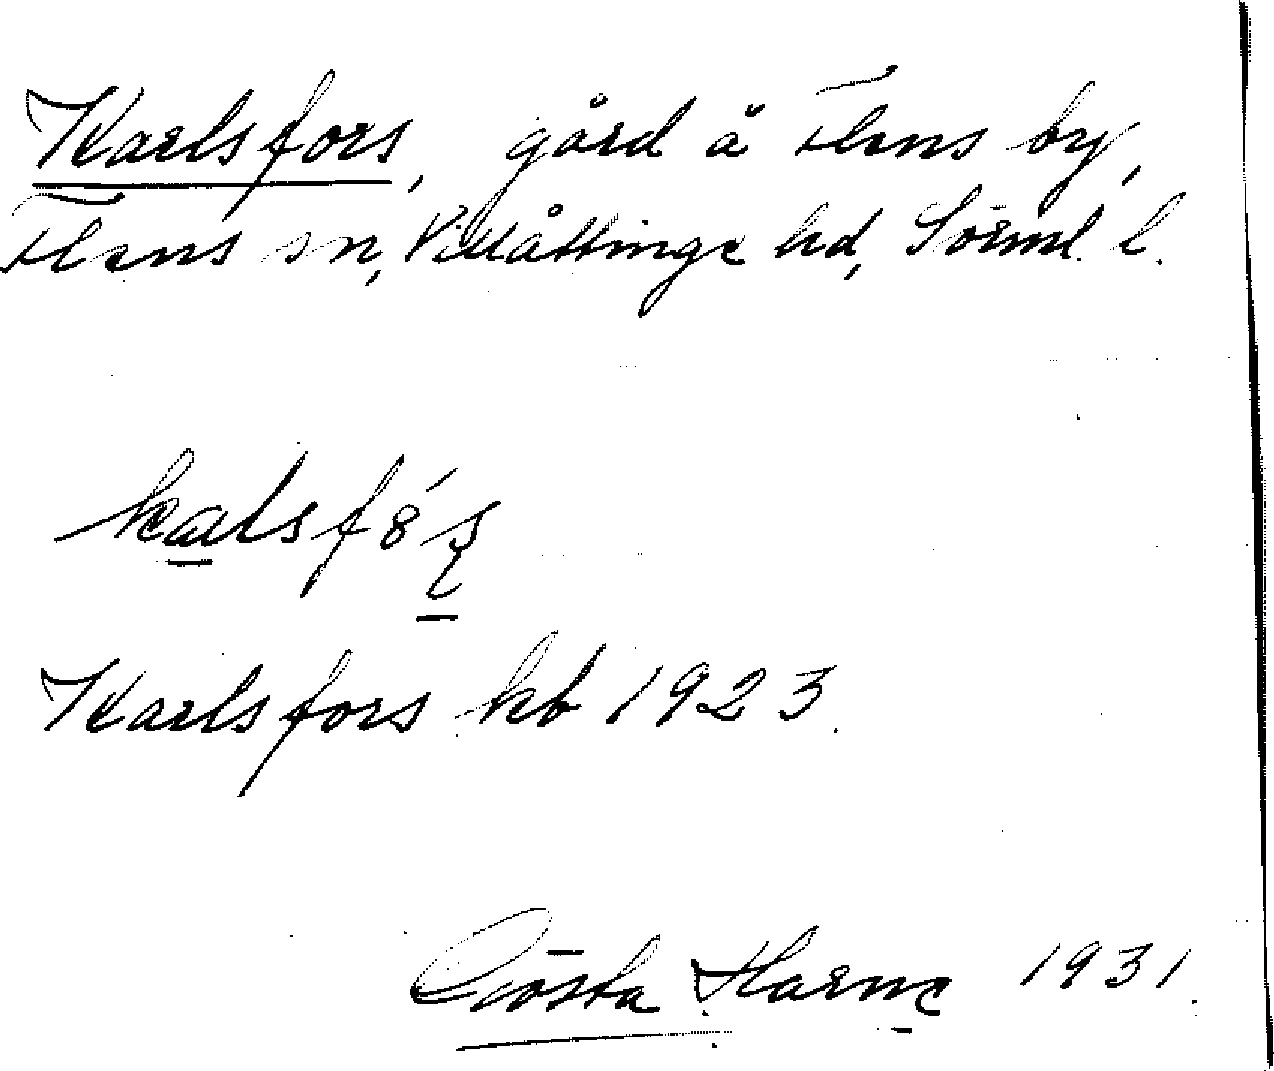 Karlsfors, gård å Flens by,
Flens sn, Villåttinge hd, Sörml. l.
Karlsfors kb 1923.
Gösta Harne 1931.